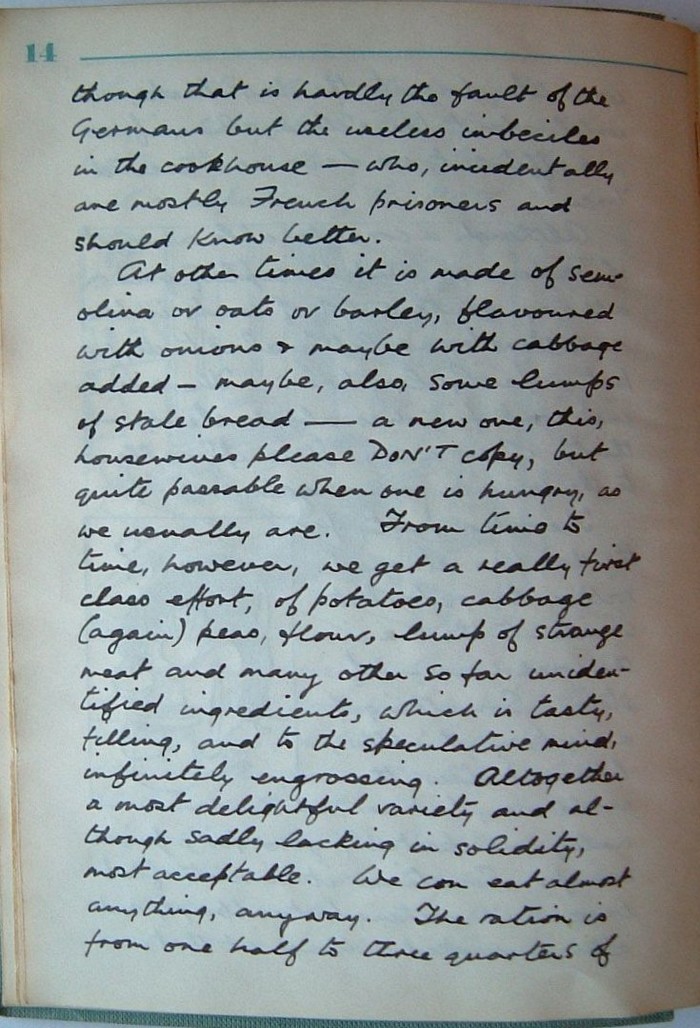 14
though that is hardly the fault of the
Germans but the useless imbeciles
in the cookhouse — who, incidentally
are mostly French prisoners and
should know better.
At other times it is made of sem-
olina or oats or barley, flavoured
with onions & maybe with cabbage
added — maybe, also, some lumps
of stale bread — a new one, this,
housewives please DON'T copy, but
quite passable when one is hungry, as
we usually are. From time to
time, however, we get a really first
class effort, of potatoes, cabbage
(again) peas, flour, lump of strange
meat and many other so far uniden-
tified ingredients, which is tasty,
filling, and to the speculative mind,
infinitely engrossing. Altogether
a most delightful variety and al-
though sadly lacking in solidity,
most acceptable. We can eat almost
anything, anyway. The ration is
from one half to three quarters of